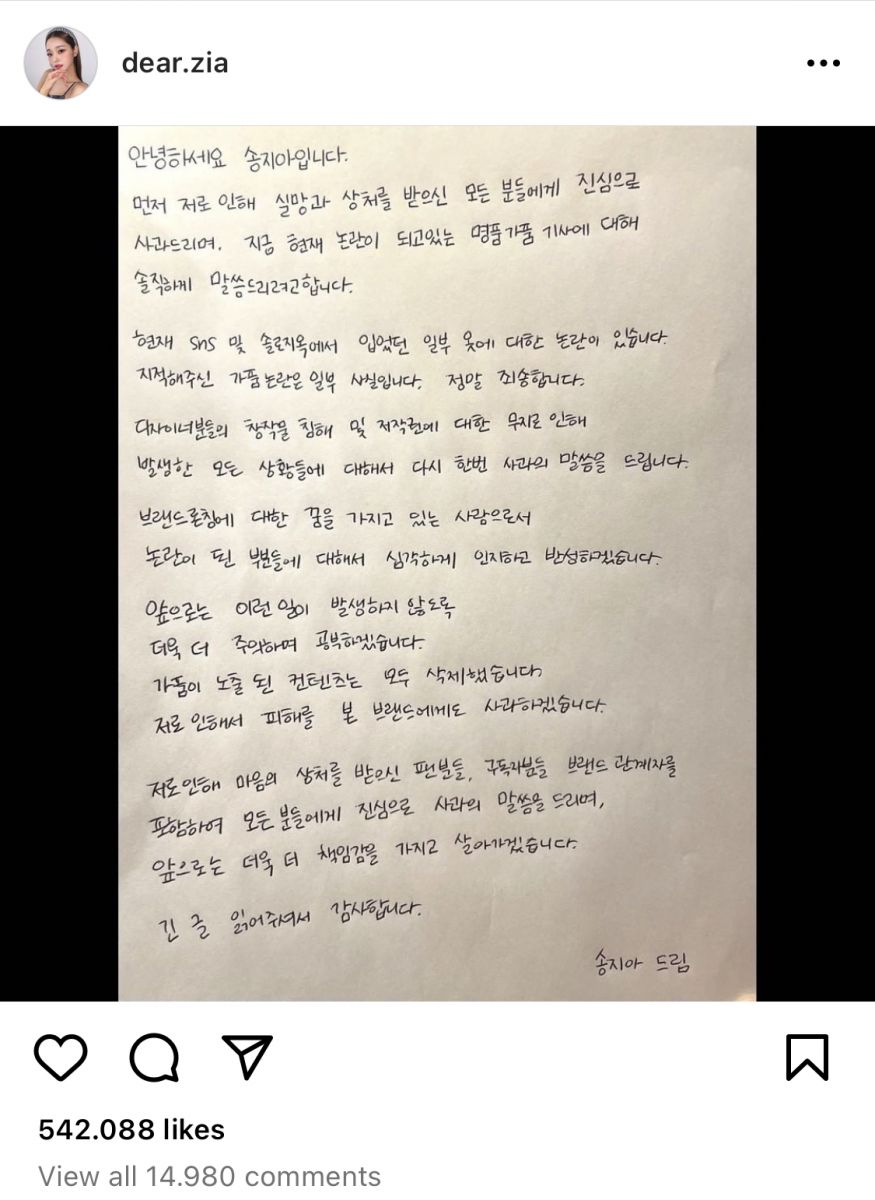 dear.zia
안녕하세요 송지아입니다.
먼저 저로 인해 실망과 상처를 받으신 모든 분들에게 진심으로
사과드리며, 지금 현재 논란이 되고있는 명품가품 기사에 대해
솔직하게 말씀드리려고합니다.
현재 SNS 및 솔로지옥에서 입었던 일부 옷에 대한 논란이 있습니다.
지적해주신 가품논란은 일부 사실입니다. 정말 죄송합니다.
디자이너분들의 창작물 침해 및 저작권에 대한 무지로 인해
발생한 모든 상황들에 대해서 다시 한번 사과의 말씀을 드립니다.
브랜드론칭에 대한 꿈을 가지고 있는 사람으로서
논란이 된 부분들에 대해서 심각하게 인지하고 반성하겠습니다.
앞으로는 이런 일이 발생하지 않도록
더욱 더 주의하며 공부하겠습니다.
가품이 노출 된 컨텐츠는 모두 삭제했습니다.
저로 인해서 피해를 본 브랜드에게도 사과하겠습니다.
저로인해 마음의 상처를 받으신 팬분들, 구독자분들 브랜드 관계자를
포함하여 모든 분들에게 진심으로 사과의 말씀을 드리며,
앞으로는 더욱 더 책임감을 가지고 살아가겠습니다.
긴 글 읽어주셔서 감사합니다.
송지아 드림
542.088 likes
View all 14.980 comments